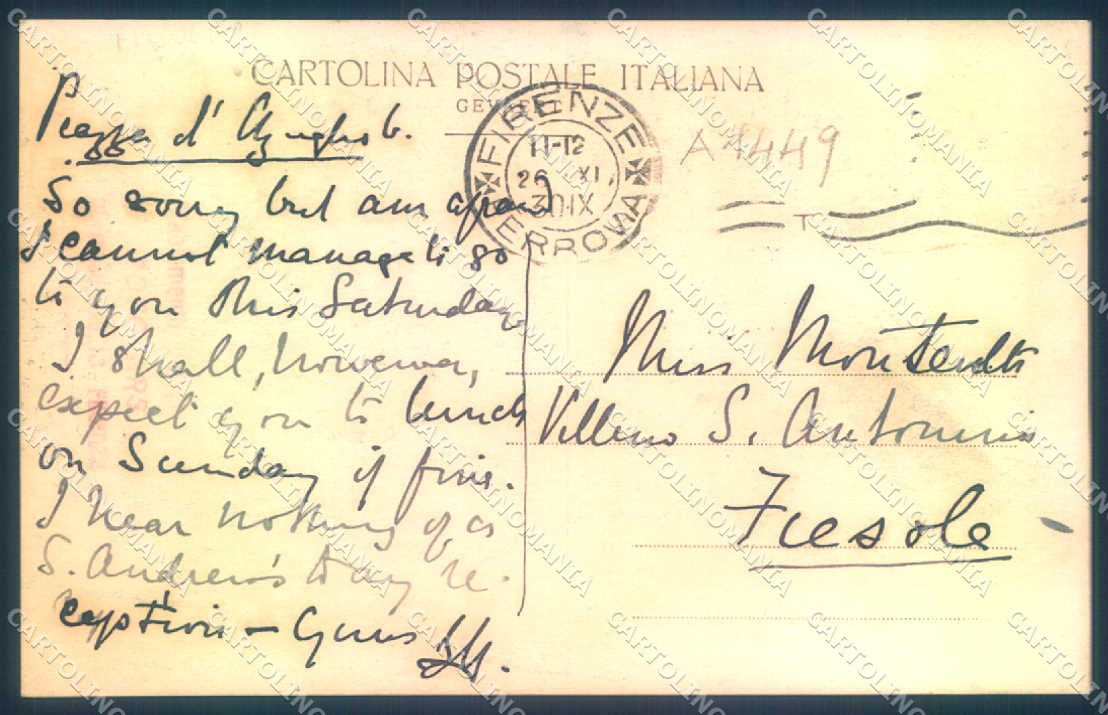 CARTOLINA POSTALE ITALIANA
GEVAERT
FIRENZE
11-12
26 XI
30 IX
FERROVIA
A4449
T
Piazza d'Azeglio 6.
So sorry but am afraid
I cannot manage to go
to you this Saturday.
I shall, however,
expect you to lunch
on Sunday if fine.
I hear nothing of a
S. Andrew's day re-
ception - Yours
Miss
S. Antonino
Fiesole
CARTOLINOMANIA